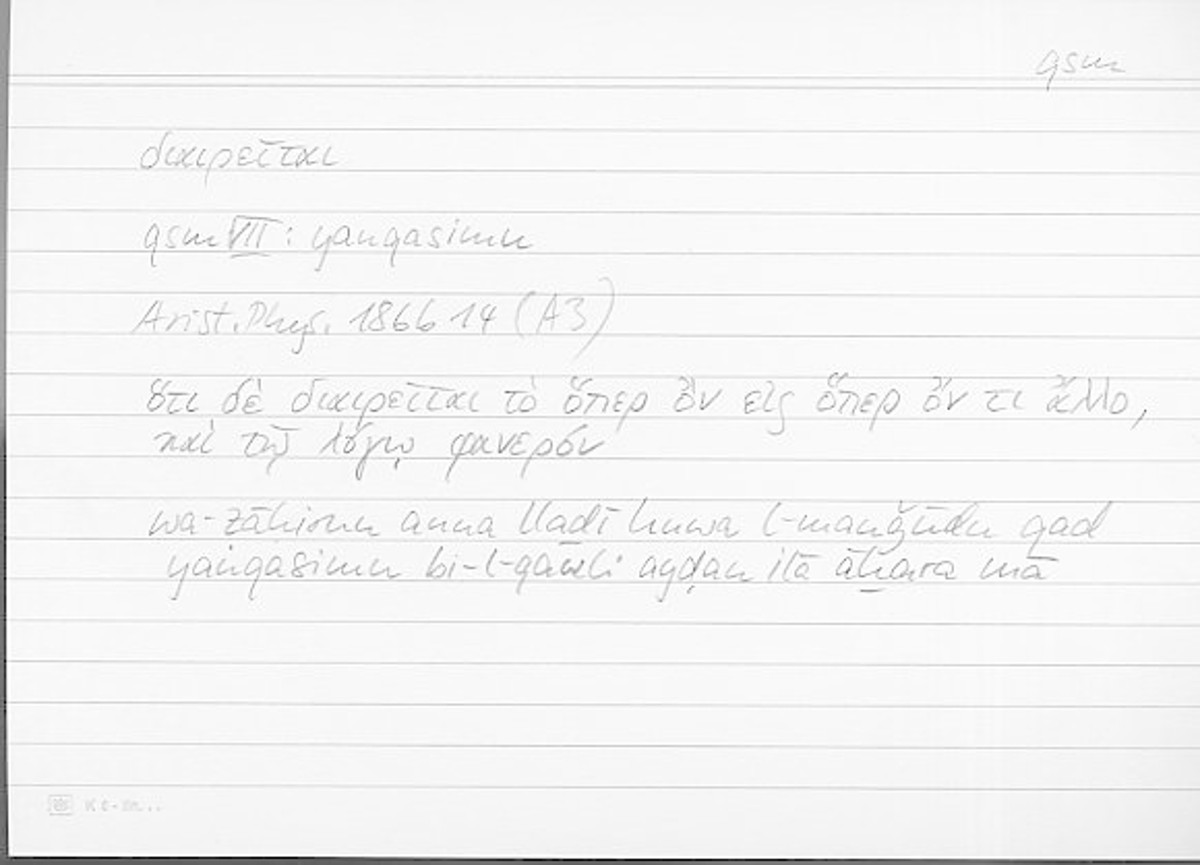 qsm
διαιρεῖται
qsm VII: yanqasimu
Arist. Phys. 186b14 (A3)
ὅτι δὲ διαιρεῖται τὸ ὅπερ ὂν εἰς ὅπερ ὄν τι ἄλλο,
καὶ τῷ λόγῳ φανερόν
wa-ẓāhirun anna lladī huwa l-mauǧūdu qad
yanqasimu bi-l-qauli ayḍan ilā āḫara mā